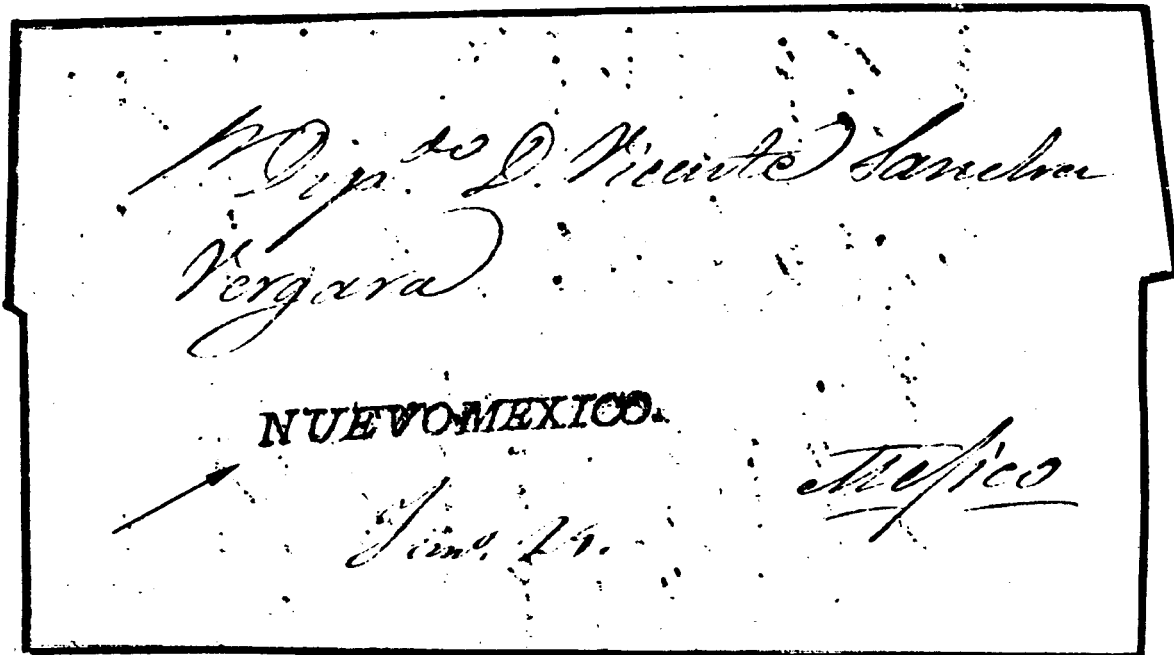 Dip.do D. Vicente Sanchez
Vergara
NUEVO MEXICO.
Mejico